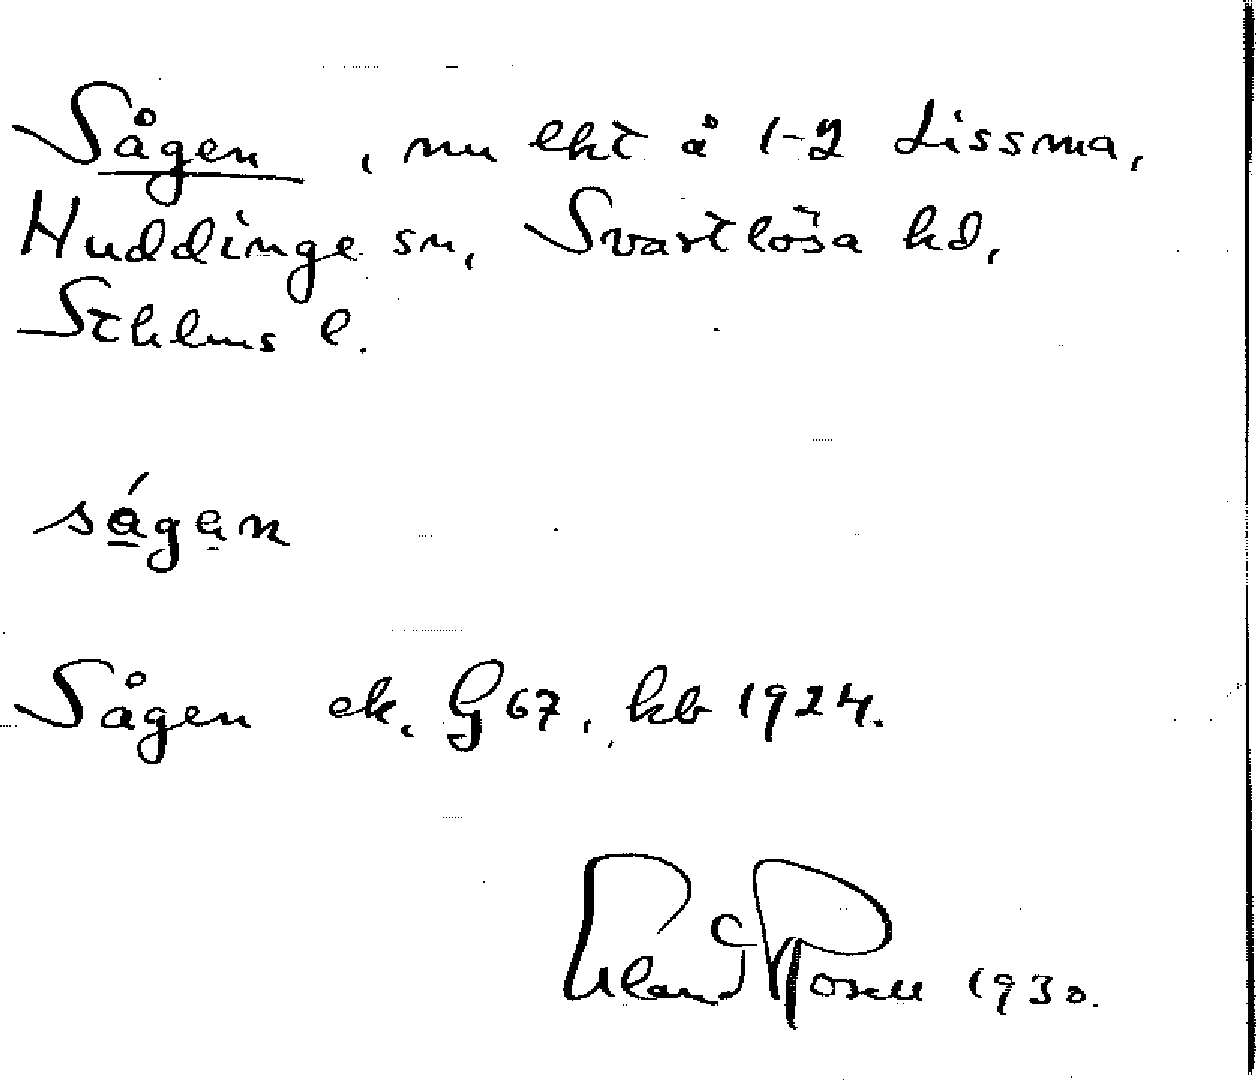 Sågen, nu lht å 1-2 Lissma,
Huddinge sn, Svartlösa hd,
Sthlms l.
ságan
Sågen ek. G67, kb 1924.
Erland Rosell 1930.